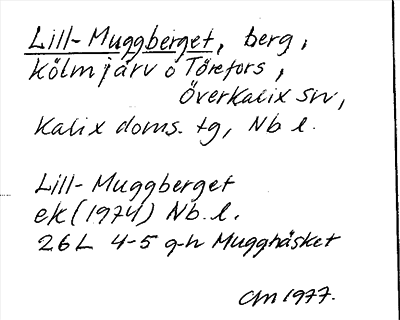 Lill-Muggberget, berg,
Kölmjärv o Törefors,
Överkalix sn,
Kalix doms. tg, Nb l.
Lill-Muggberget
ek (1974) Nb. l.
26L 4-5 g-h Mugghäsket
CM 1977.